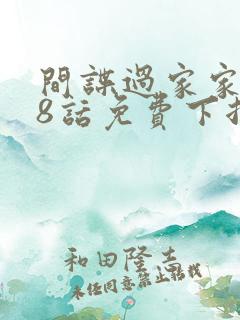 間諜過家家
8話免費下
和田隆志
未経同意禁止轉載